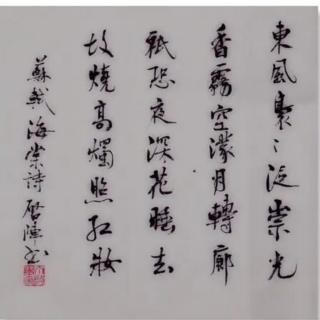 東風裊〻泛崇光
香霧空濛月轉廊
祇恐夜深花睡去
故燒高燭照紅妝
蘇軾海棠詩 啓陣書